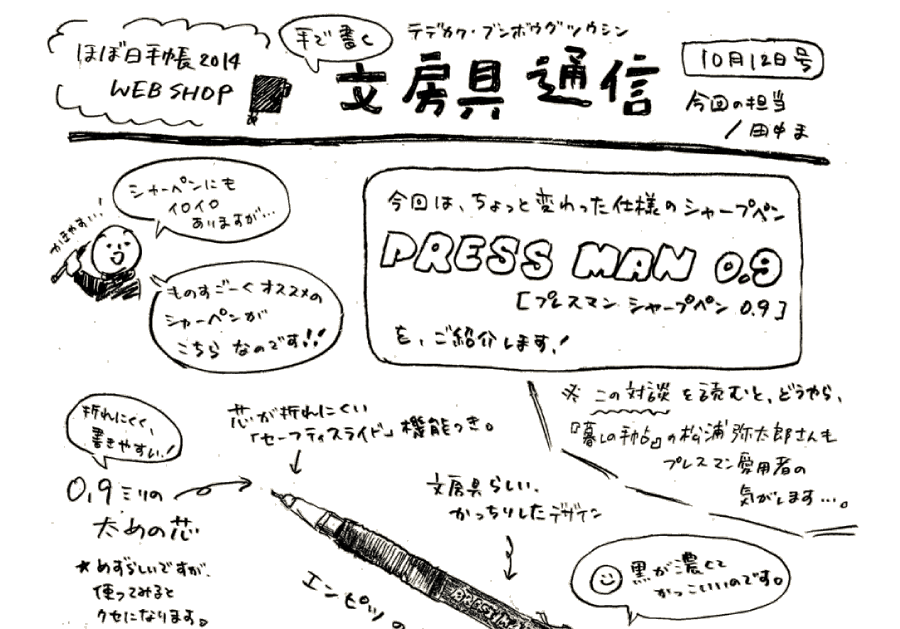 ほぼ日手帳2014
WEB SHOP
手で書く
テデカク・ブンボウグツウシン
文房具通信
10月12日号
今回の担当
/田中ま
シャーペンにも
イロイロ
ありますが…
かきやすい!
ものすごーくオススメの
シャーペンが
こちらなのです!!
今回は、ちょっと変わった仕様のシャープペン
PRESS MAN 0.9
[プレスマン シャープペン 0.9]
を、ご紹介します!
※この対談を読むと、どうやら、
『暮しの手帖』の松浦弥太郎さんも
プレスマン愛用者の
気がします…。
折れにくく、
書きやすい!
0.9ミリの
太めの芯
★めずらしいですが、
使ってみると
クセになります。
芯が折れにくい
「セーフティスライド」機能つき。
文房具らしい、
かっちりしたデザイン
黒が濃くて
かっこいいのです。
エンピツの
PRESSMAN